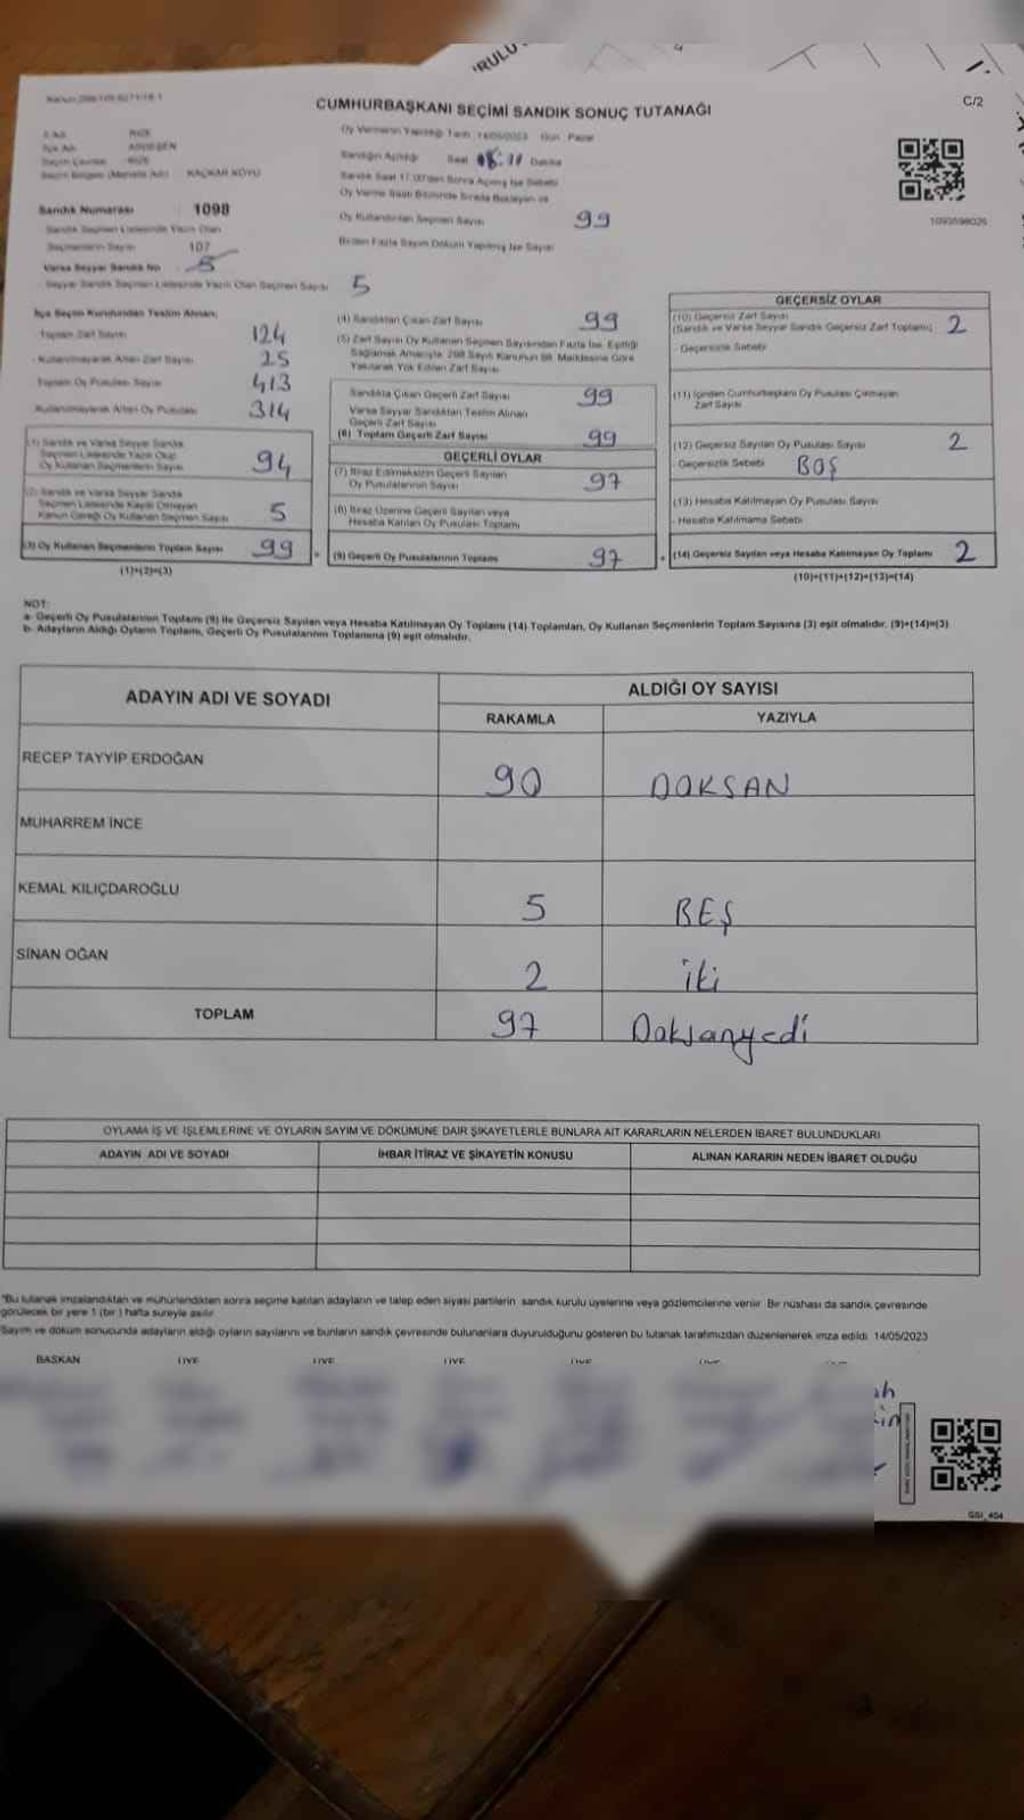 RULU
C/2
CUMHURBAŞKANI SEÇİMİ SANDIK SONUÇ TUTANAĞI
Oy Vermenin Yapıldığı Tarih 14/05/2023 Gün Pazar
Sandığın Açıldığı Saat Dakika
KAÇKAR KÖYÜ
Oy Verme Saati Bitiminde Sırada Bekleyen ve
Sandık Numarası 1098
Oy Kullandırılan Seçmen Sayısı 99
Sandık Seçmen Listesinde Yazılı Olan
Seçmenlerin Sayısı 107
Birden Fazla Sayım Döküm Yapılmış İse Sayısı
Varsa Seyyar Sandık No 5
Seyyar Sandık Seçmen Listesinde Yazılı Olan Seçmen Sayısı 5
İlçe Seçim Kurulundan Teslim Alınan;
Toplam Zarf Sayısı 124
Kullanılmayarak Artan Zarf Sayısı 25
Toplam Oy Pusulası Sayısı 413
Kullanılmayarak Artan Oy Pusulası 314
(1) Sandık ve Varsa Seyyar Sandık
Seçmen Listesinde Yazılı Olup
Oy Kullanan Seçmenlerin Sayısı 94
(2) Sandık ve Varsa Seyyar Sandık
Seçmen Listesinde Kayıtlı Olmayan
Kanun Gereği Oy Kullanan Seçmen Sayısı 5
(3) Oy Kullanan Seçmenlerin Toplam Sayısı 99
(1)+(2)=(3)
(4) Sandıktan Çıkan Zarf Sayısı 99
(5) Zarf Sayısı Oy Kullanan Seçmen Sayısından Fazla İse, Eşitliği
Sağlamak Amacıyla, 298 Sayılı Kanunun 98. Maddesine Göre
Yakılarak Yok Edilen Zarf Sayısı
Sandıkta Çıkan Geçerli Zarf Sayısı 99
Varsa Seyyar Sandıktan Teslim Alınan
Geçerli Zarf Sayısı
(6) Toplam Geçerli Zarf Sayısı 99
GEÇERLİ OYLAR
(7) İtiraz Edilmeksizin Geçerli Sayılan
Oy Pusulalarının Sayısı 97
(8) İtiraz Üzerine Geçerli Sayılan veya
Hesaba Katılan Oy Pusulası Toplamı
(9) Geçerli Oy Pusulalarının Toplamı 97
GEÇERSİZ OYLAR
(10) Geçersiz Zarf Sayısı
(Sandık ve Varsa Seyyar Sandık Geçersiz Zarf Toplamı) 2
Geçersizlik Sebebi
(11) İçinden Cumhurbaşkanı Oy Pusulası Çıkmayan
Zarf Sayısı
(12) Geçersiz Sayılan Oy Pusulası Sayısı 2
Geçersizlik Sebebi BOŞ
(13) Hesaba Katılmayan Oy Pusulası Sayısı
- Hesaba Katılmama Sebebi
(14) Geçersiz Sayılan veya Hesaba Katılmayan Oy Toplamı 2
(10)+(11)+(12)+(13)=(14)
NOT:
a- Geçerli Oy Pusulalarının Toplamı (9) ile Geçersiz Sayılan veya Hesaba Katılmayan Oy Toplamı (14) Toplamları, Oy Kullanan Seçmenlerin Toplam Sayısına (3) eşit olmalıdır. (9)+(14)=(3)
b- Adayların Aldığı Oyların Toplamı, Geçerli Oy Pusulalarının Toplamına (9) eşit olmalıdır.
ADAYIN ADI VE SOYADI ALDIĞI OY SAYISI
RAKAMLA YAZIYLA
RECEP TAYYİP ERDOĞAN 90 DOKSAN
MUHARREM İNCE
KEMAL KILIÇDAROĞLU 5 BEŞ
SİNAN OĞAN 2 iki
TOPLAM 97 Doksanyedi
OYLAMA İŞ VE İŞLEMLERİNE VE OYLARIN SAYIM VE DÖKÜMÜNE DAİR ŞİKAYETLERLE BUNLARA AİT KARARLARIN NELERDEN İBARET BULUNDUKLARI
ADAYIN ADI VE SOYADI İHBAR İTİRAZ VE ŞİKAYETİN KONUSU ALINAN KARARIN NEDEN İBARET OLDUĞU
"Bu tutanak imzalandıktan ve mühürlendikten sonra seçime katılan adayların ve talep eden siyasi partilerin sandık kurulu üyelerine veya gözlemcilerine verilir. Bir nüshası da sandık çevresinde
görülecek bir yere 1 (bir) hafta süreyle asılır
Sayım ve döküm sonucunda adayların aldığı oyların sayılarını ve bunların sandık çevresinde bulunanlara duyurulduğunu gösteren bu tutanak tarafımızdan düzenlenerek imza edildi. 14/05/2023
BAŞKAN ÜYE ÜYE ÜYE